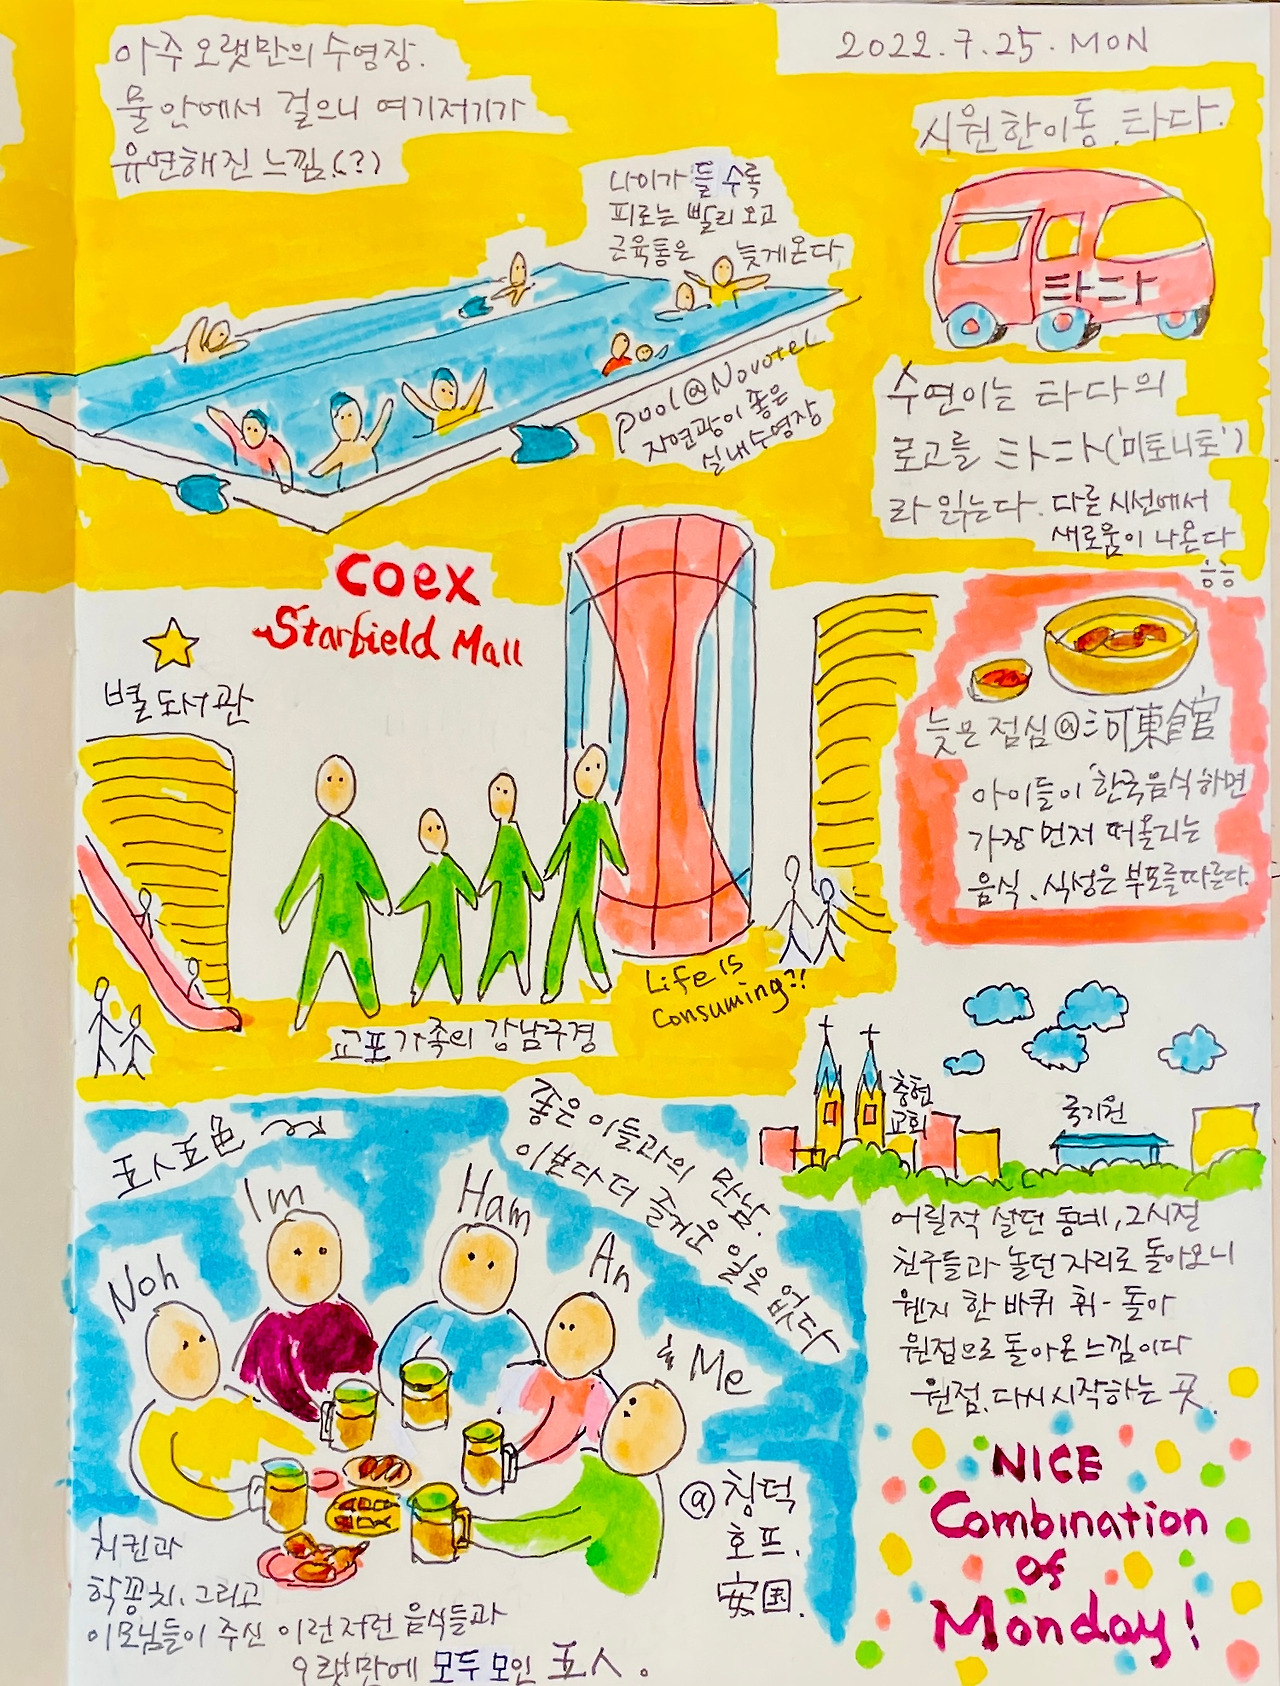 2022.7.25. MON
아주 오랫만의 수영장.
물 안에서 걸으니 여기저기가
유연해진 느낌.(?)
나이가 들 수록
피로는 빨리 오고
근육통은 늦게 온다.
pool@Novotel
자연광이 좋은
실내수영장
시원한 이동, 타다.
타다
수연이는 타다의
로고를 ㅌㅏㄷㅏ('미토니토')
라 읽는다. 다른 시선에서
새로움이 나온다
ㅎㅎ
coex
Starfield Mall
별도서관
Life is
consuming?!
교포가족의 강남구경
늦은 점심@河東館
아이들이 한국음식하면
가장 먼저 떠올리는
음식. 식성은 부모를 따른다.
충현
교회
국기원
어릴적 살던 동네, 그시절
친구들과 놀던 자리로 돌아오니
웬지 한 바퀴 휘- 돌아
원점으로 돌아온 느낌이다
원점. 다시 시작하는 곳.
五人五色
좋은 이들과의 만남.
이보다 더 즐거운 일은 없다
Noh
Im
Ham
An
& Me
@창덕
호프.
安国.
치킨과
학꽁치, 그리고
이모님들이 주신 이런저런 음식들과
오랫만에 모두 모인 五人.
NICE
Combination
of
Monday!